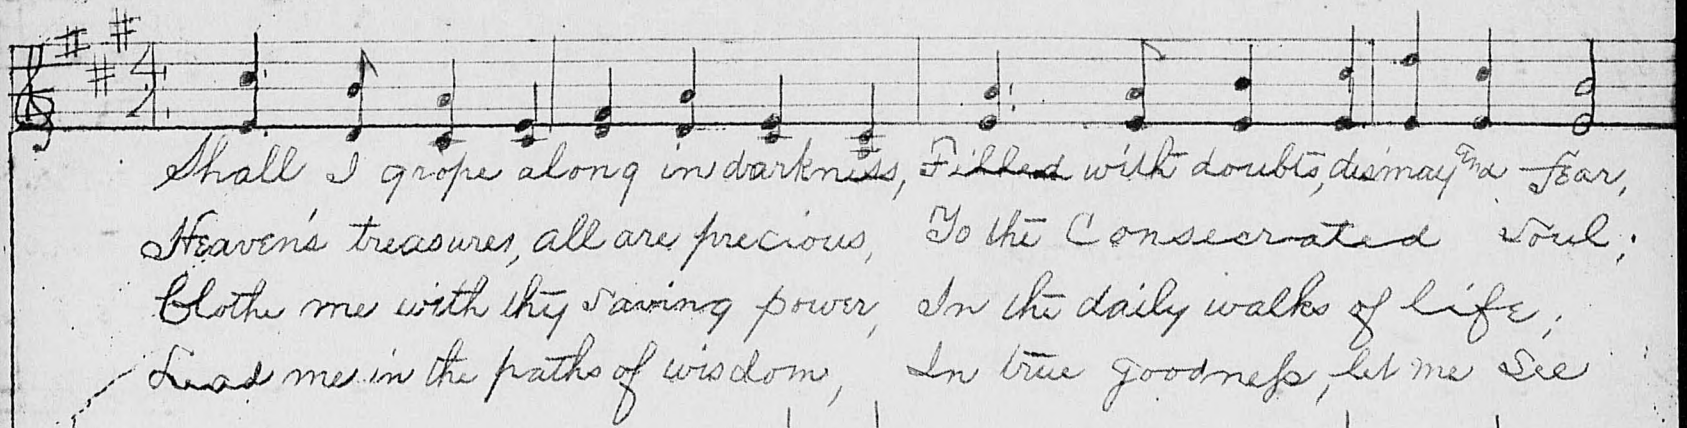 Shall I grope along in darkness, Filled with doubts, dismay and fear,
Heaven's treasures, all are precious, To the Consecrated soul;
Clothe me with thy saving power, In the daily walks of life;
Lead me in the paths of wisdom, In true goodneſs, let me See